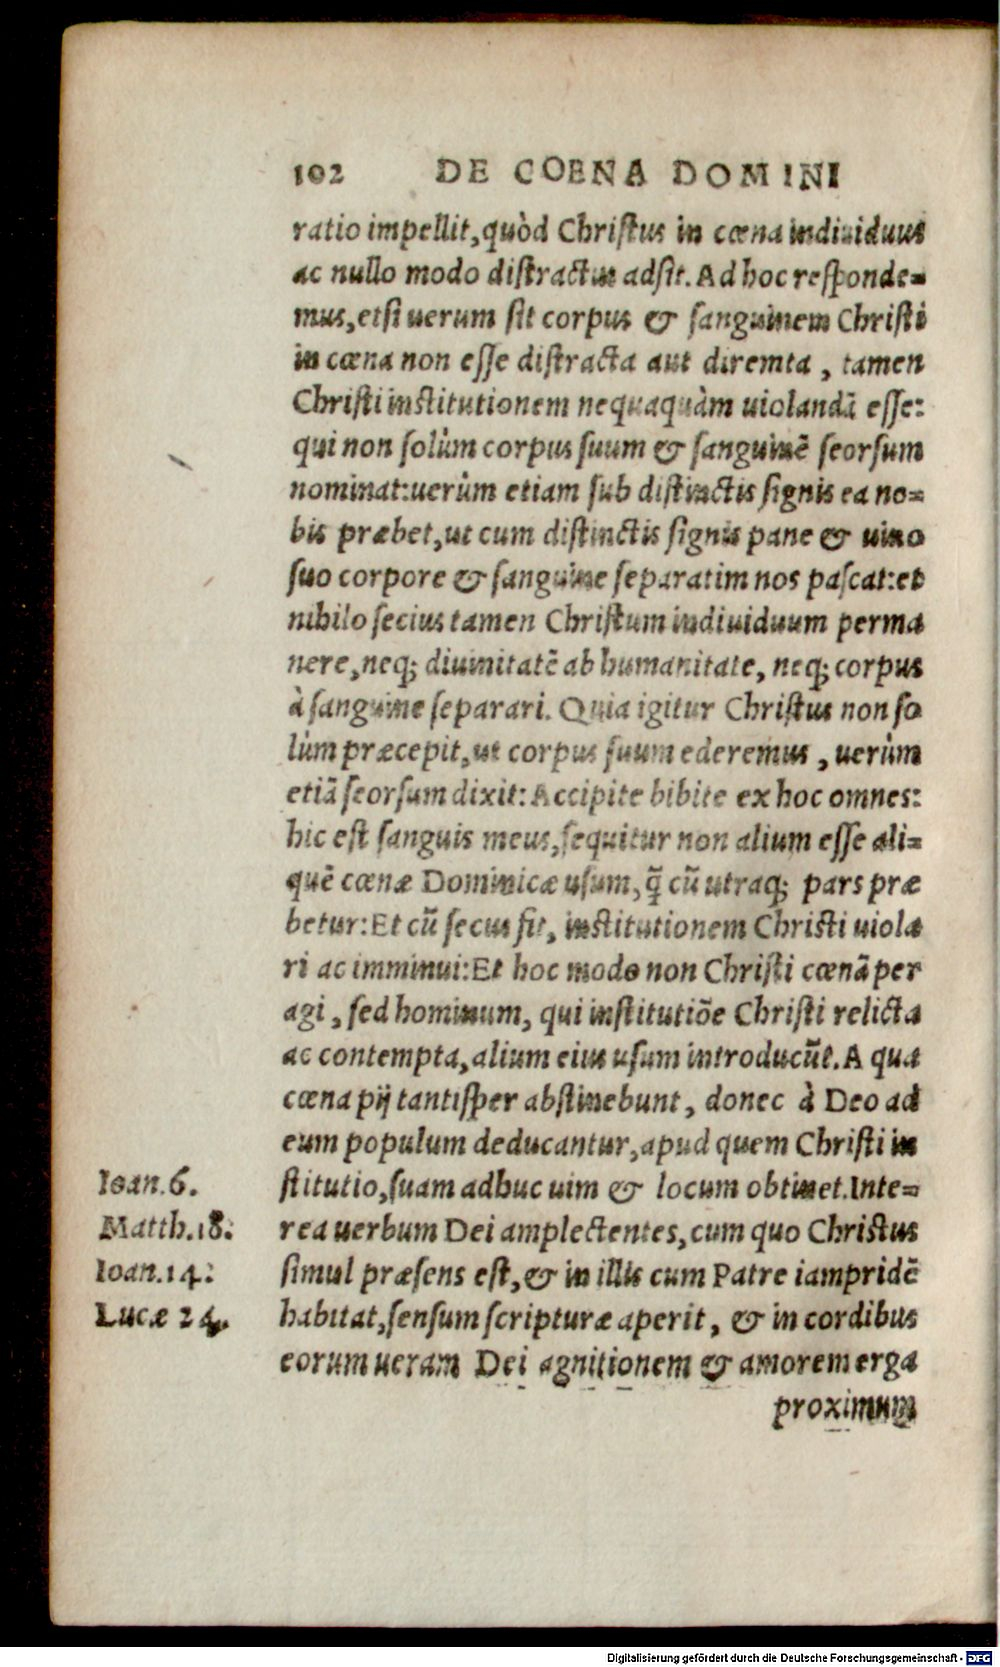 102 DE COENA DOMINI
ratio impellit, quòd Christus in cœna indiuiduus
ac nullo modo distractus adsit. Ad hoc responde=
mus, etsi uerum sit corpus & sanguinem Christi
in cœna non esse distracta aut diremta, tamen
Christi institutionem nequaquàm uiolandā esse:
qui non solùm corpus suum & sanguinē seorsum
nominat: uerùm etiam sub distinctis signis ea no=
bis præbet, ut cum distinctis signis pane & uino
suo corpore & sanguine separatim nos pascat: et
nihilo secius tamen Christum indiuiduum perma
nere, neq; diuinitatē ab humanitate, neq; corpus
à sanguine separari. Quia igitur Christus non so
lùm præcepit, ut corpus suum ederemus, uerùm
etiā seorsum dixit: Accipite bibite ex hoc omnes:
hic est sanguis meus, sequitur non alium esse ali=
quē cœnæ Dominicæ usum, q̄ cū utraq; pars præ
betur: Et cū secus fit, institutionem Christi uiola
ri ac imminui: Et hoc modo non Christi cœnā per
agi, sed hominum, qui institutiōe Christi relicta
ac contempta, alium eius usum introducūt. A qua
cœna pij tantisper abstinebunt, donec à Deo ad
eum populum deducantur, apud quem Christi in
Ioan. 6.
stitutio, suam adhuc uim & locum obtinet. Inte=
Matth. 18.
rea uerbum Dei amplectentes, cum quo Christus
Ioan. 14.
simul præsens est, & in illis cum Patre iampridē
Lucæ 24.
habitat, sensum scripturæ aperit, & in cordibus
eorum ueram Dei agnitionem & amorem erga
proximum
Digitalisierung gefördert durch die Deutsche Forschungsgemeinschaft - DFG